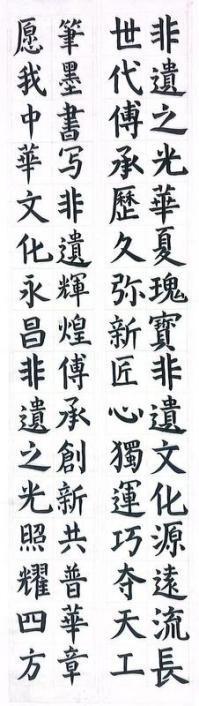 非遺之光華夏瑰寶非遺文化源遠流長
世代傅承歷久弥新匠心獨運巧夺天工
筆墨書写非遺輝煌傅承創新共普華章
愿我中華文化永昌非遺之光照耀四方